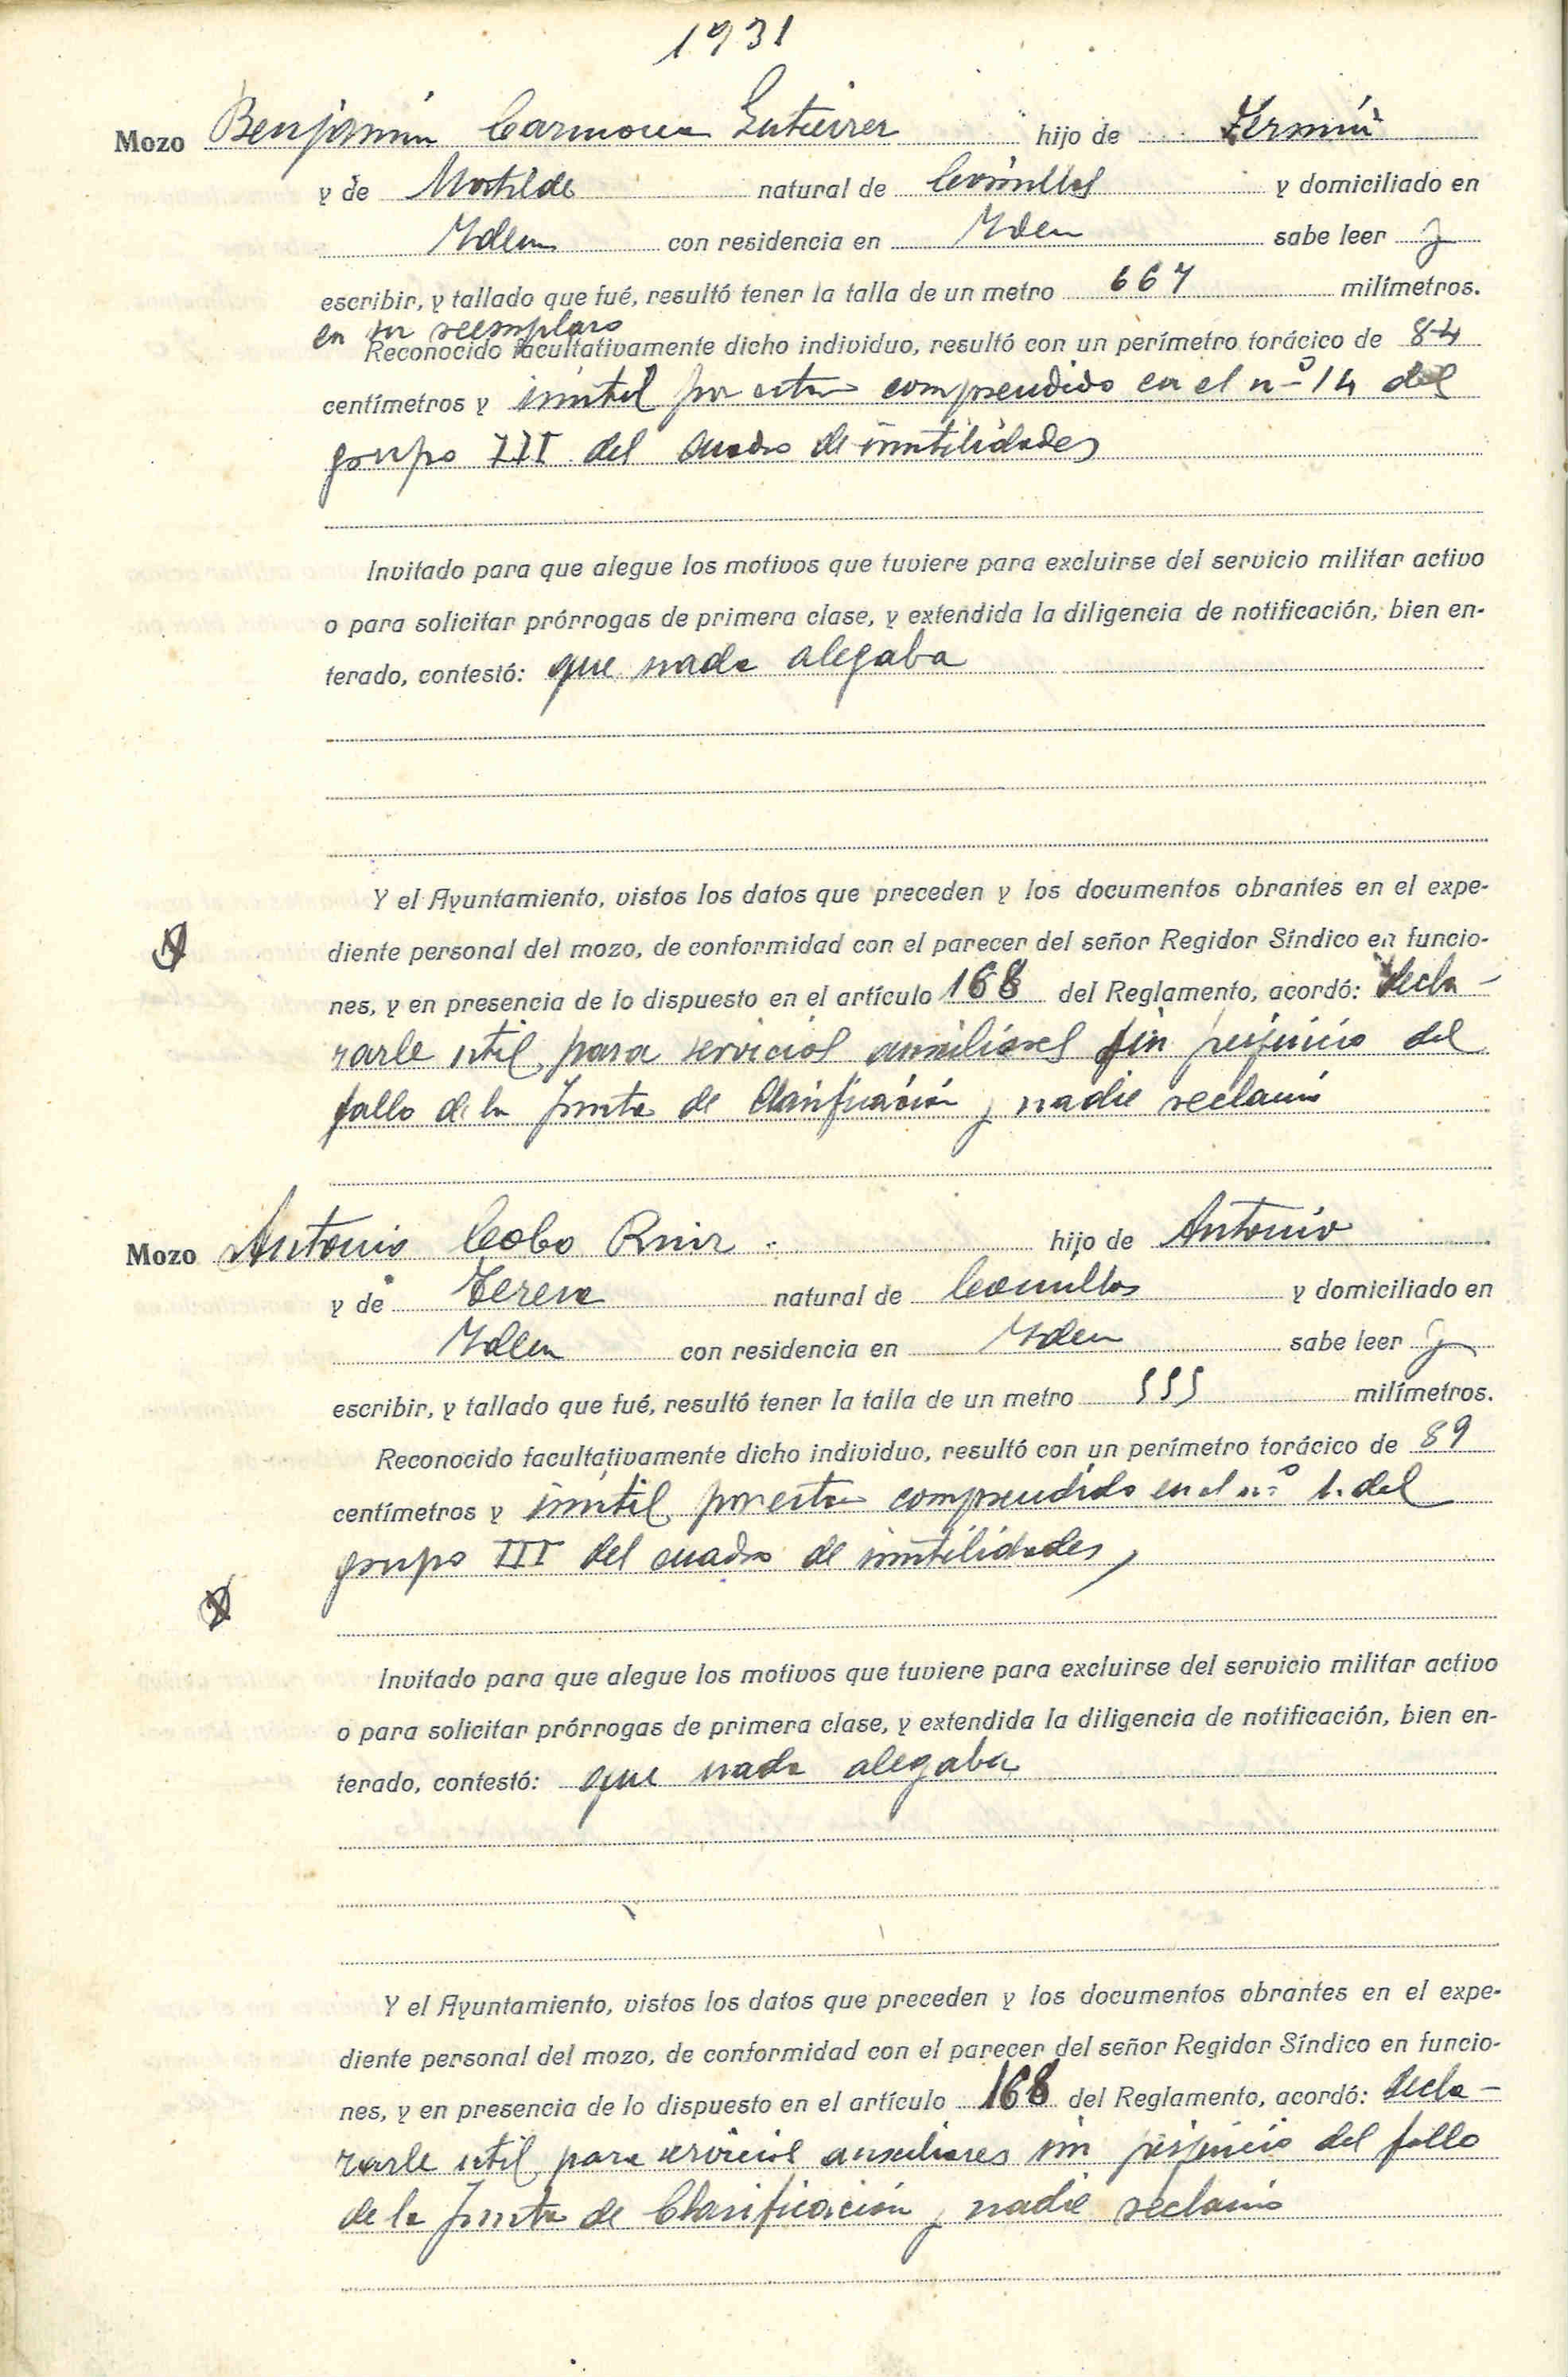 1931
Mozo Benjamin Carmona Gutierrez hijo de Fermín
y de Matilde natural de Comillas y domiciliado en
Idem con residencia en Idem sabe leer y
escribir, y tallado que fué, resultó tener la talla de un metro 667 milímetros.
en su reemplazo
Reconocido facultativamente dicho individuo, resultó con un perímetro torácico de 84
centímetros y inútil por estar comprendido en el nº 14 del
grupo III del cuadro de inutilidades
Invitado para que alegue los motivos que tuviere para excluirse del servicio militar activo
o para solicitar prórrogas de primera clase, y extendida la diligencia de notificación, bien en-
terado, contestó: que nada alegaba
Y el Ayuntamiento, vistos los datos que preceden y los documentos obrantes en el expe-
diente personal del mozo, de conformidad con el parecer del señor Regidor Síndico en funcio-
nes, y en presencia de lo dispuesto en el artículo 168 del Reglamento, acordó: decla-
rarle util para servicios auxiliares sin perjuicio del
fallo de la Junta de Clasificación y nadie reclamó
Mozo Antonio Cobo Ruiz hijo de Antonio
y de Teresa natural de Comillas y domiciliado en
Idem con residencia en Idem sabe leer y
escribir, y tallado que fué, resultó tener la talla de un metro 555 milímetros.
Reconocido facultativamente dicho individuo, resultó con un perímetro torácico de 89
centímetros y inútil por estar comprendido en el nº 1. del
grupo III del cuadro de inutilidades,
Invitado para que alegue los motivos que tuviere para excluirse del servicio militar activo
o para solicitar prórrogas de primera clase, y extendida la diligencia de notificación, bien en-
terado, contestó: que nada alegaba
Y el Ayuntamiento, vistos los datos que preceden y los documentos obrantes en el expe-
diente personal del mozo, de conformidad con el parecer del señor Regidor Síndico en funcio-
nes, y en presencia de lo dispuesto en el artículo 168 del Reglamento, acordó: decla-
rarle util para servicios auxiliares sin perjuicio del fallo
de la Junta de Clasificación y nadie reclamó